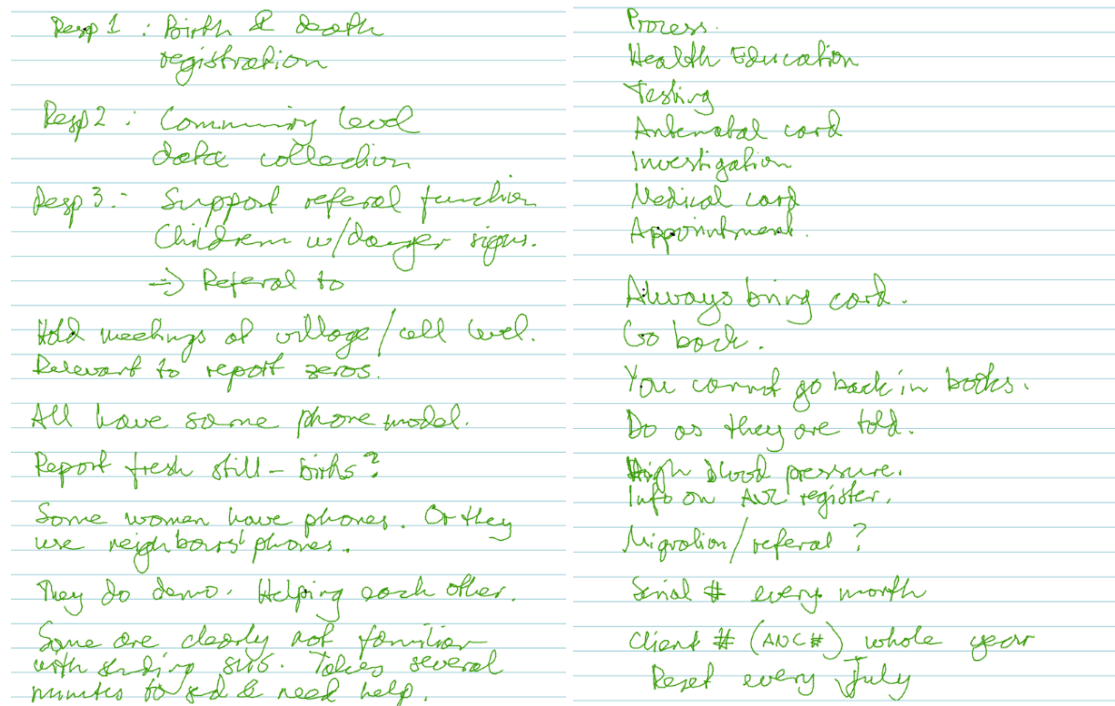 Resp 1 : Birth & death
registration
Resp 2 : Community level
data collection
Resp 3 :- Support referal function
Children w/danger signs.
=> Referal to
Hold meetings at village/cell level.
Relevant to report zeros.
All have same phone model.
Report fresh still-births?
Some women have phones. Or they
use neighbours' phones.
They do demo. Helping each other.
Some are clearly not familiar
with sending SMS. Takes several
minutes to & need help.
Process.
Health Education
Testing
Antenatal card
Investigation
Medical card
Appointment.
Always bring card.
Go back.
You cannot go back in books.
Do as they are told.
High blood pressure.
Info on ANC register.
Migration/referal?
Serial # every month
Client # (ANC#) whole year
Reset every July